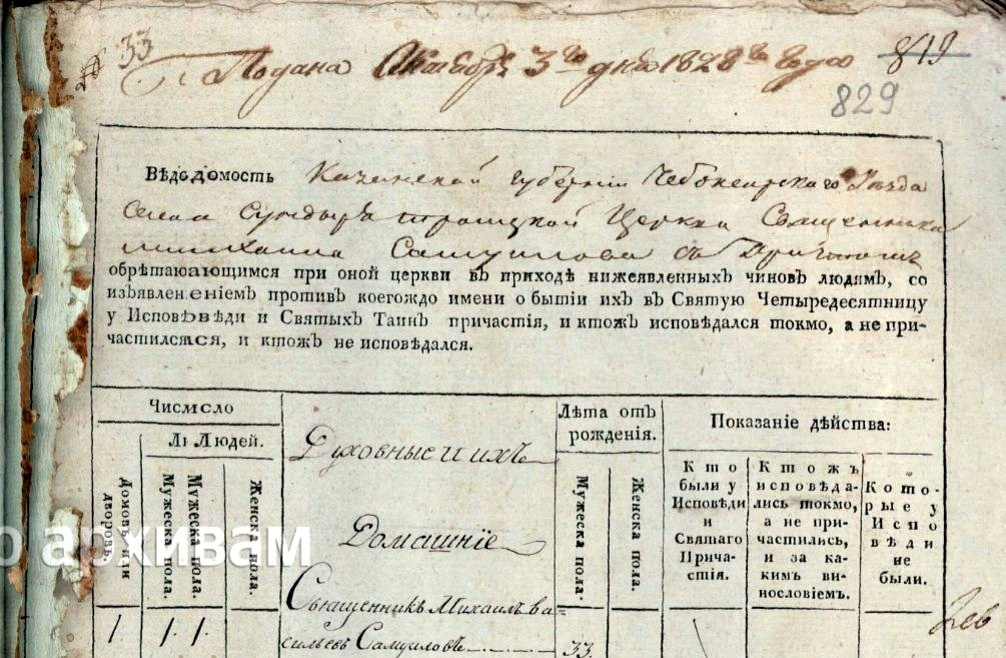 № 33
Подана Октября 3го дня 1828го года
819
829
Вѣдодомость Казанской губернiи Чебоксарскаго Уѣзда
Села Сундыря Троицкой Церкви Священника
Михаила Самуилова съ Причтомъ
обрѣтаюающимся при оной церкви въ приходѣ нижеявленныхъ чиновъ людямъ, со
изъявлененіемъ противъ коегождо имени о бытіи ихъ въ Святую Четыредесятницу
у Исповѣвѣди и Святыхъ Таинъ причастія, и ктожъ исповѣдался токмо, а не при-
частилсялся, и ктожъ не исповѣдался.
Числсло
Лѣта отъ
рожденія.
Показаніе дѣйства:
Людей.
Домовъ или
дворовъ.
Мужеска пола.
Мужеска пола.
Женска пола.
Духовные и ихъ
Домашніе
Мужеска пола.
Женска пола.
Кто
были у
Исповѣди
и
Святаго
Прича-
стія.
Ктожъ
исповѣда-
лись токмо,
а не при-
частились,
и за ка-
кимъ ви-
нословіемъ.
Кото-
рые у
Испо
вѣди
не
были.
о архивам
1
1
1
Священникъ Михаилъ ва=
сильевъ Самуиловъ
33